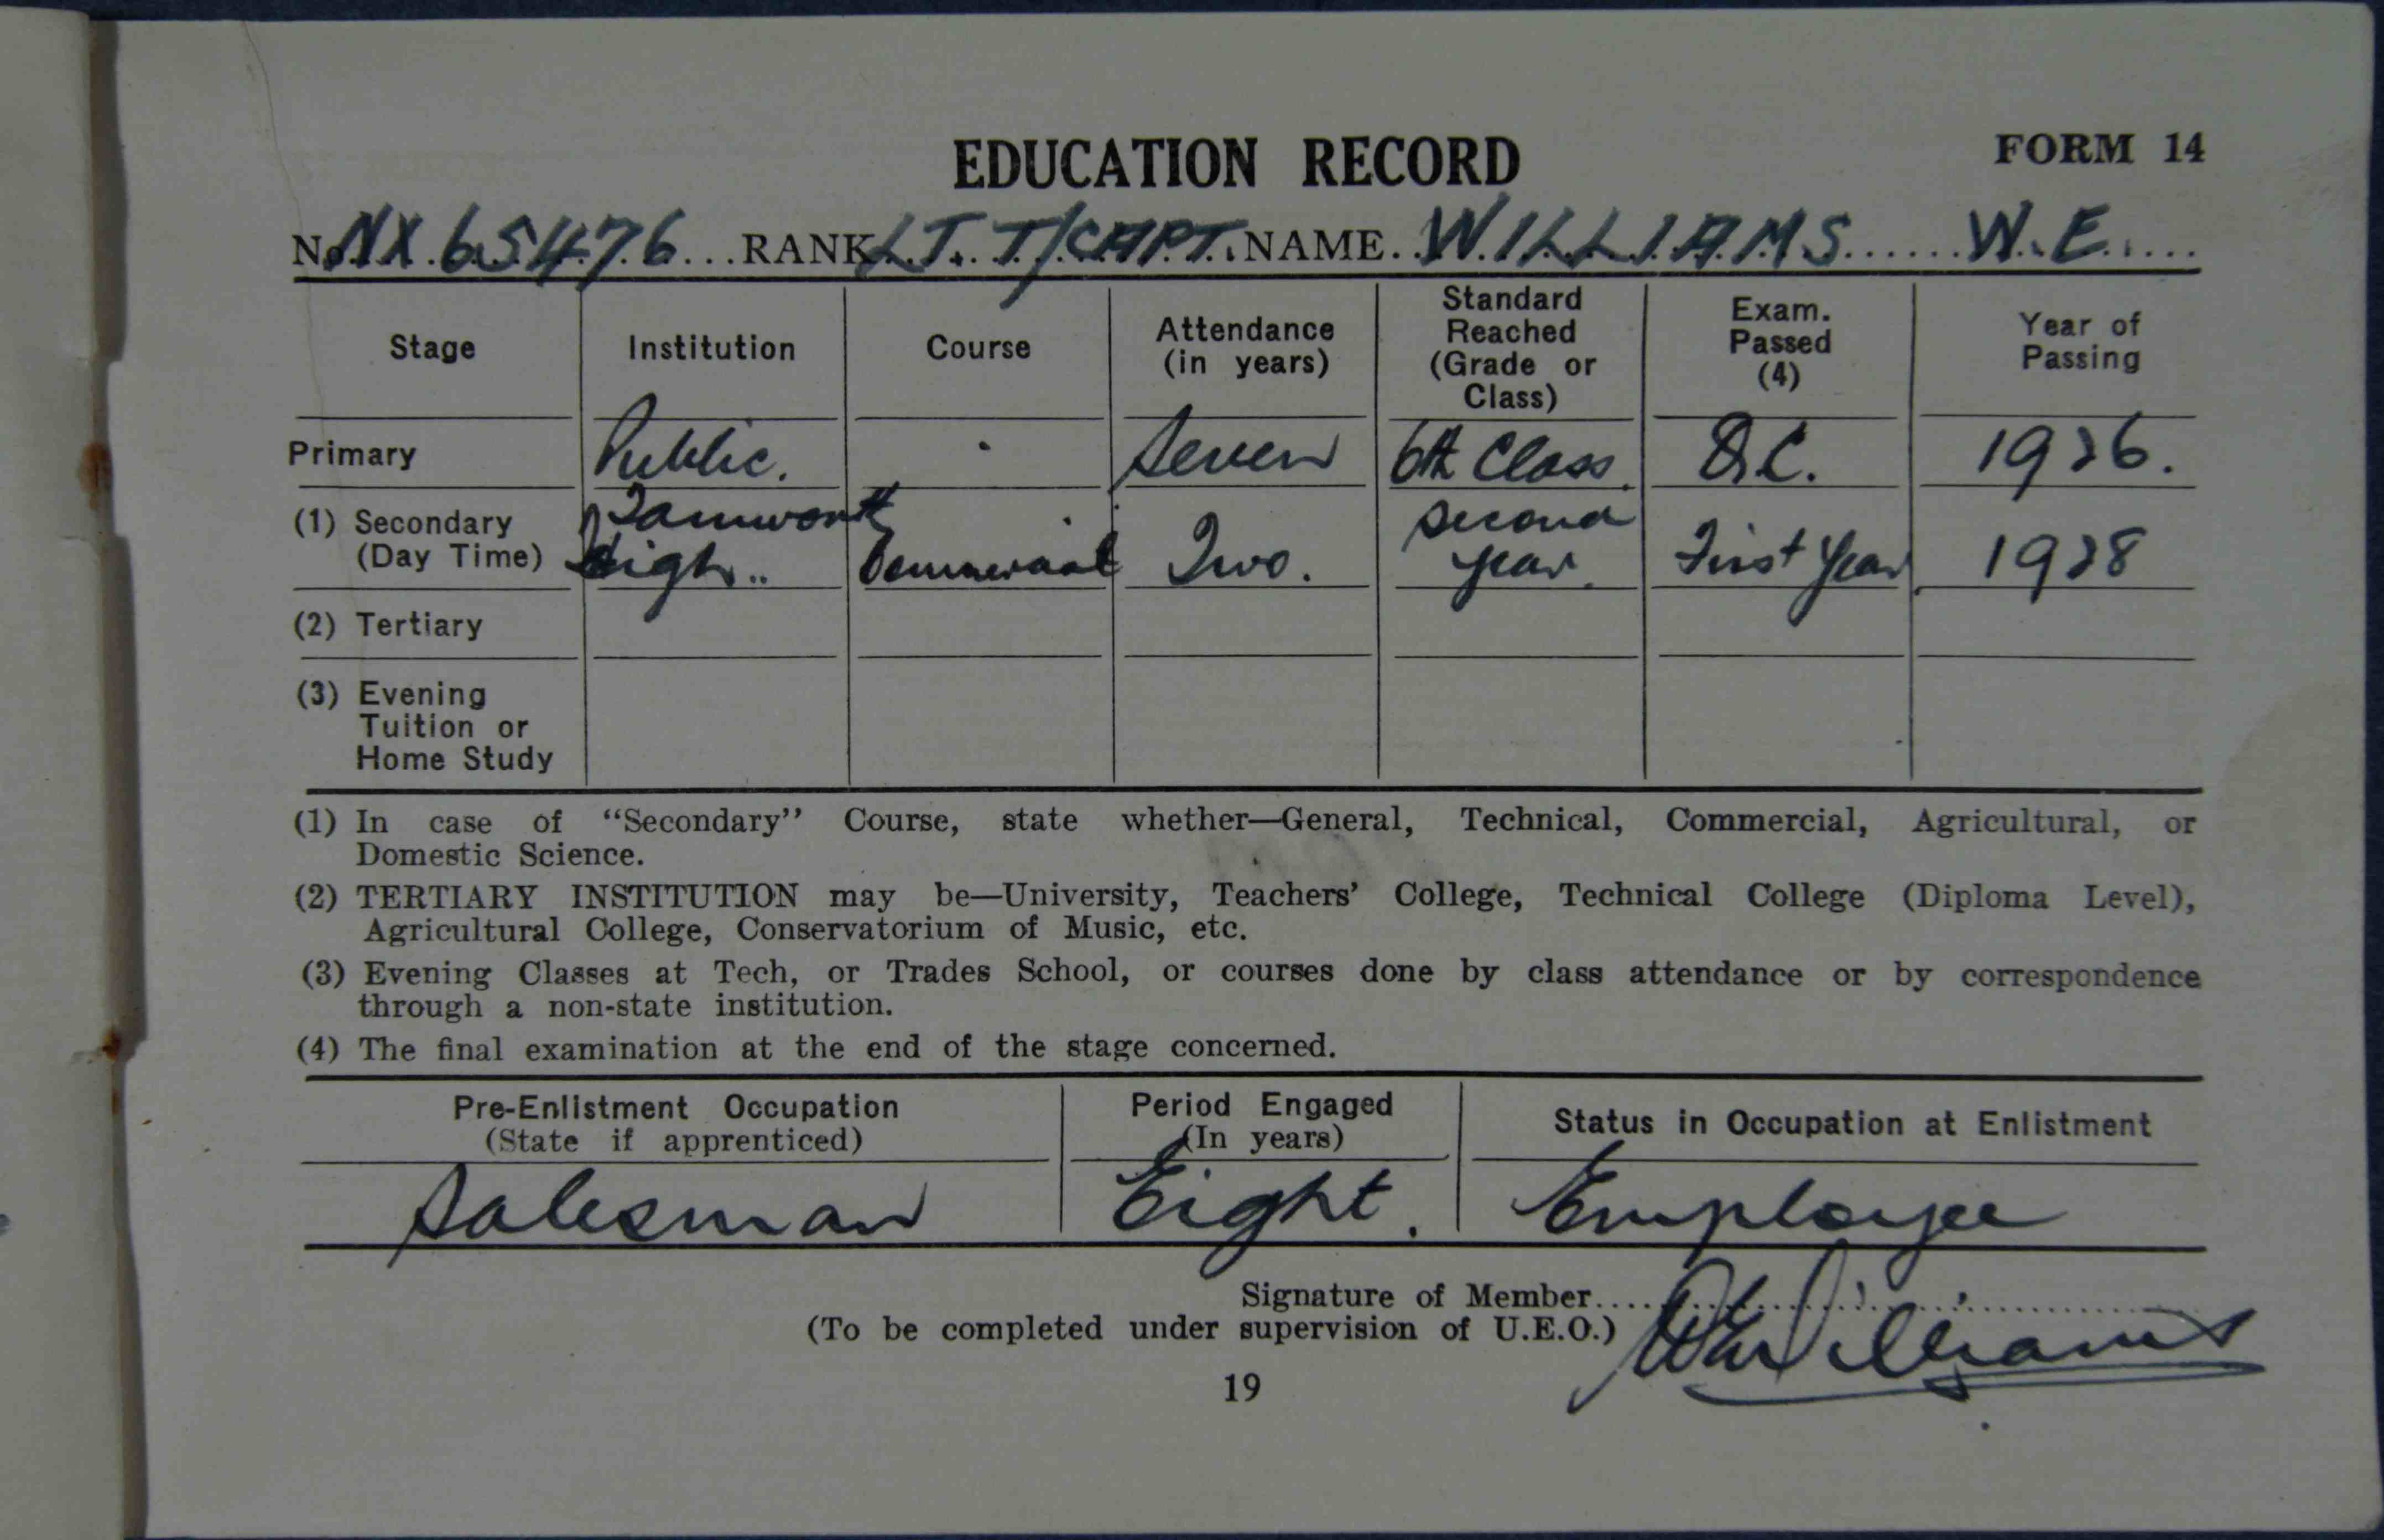 EDUCATION RECORD
FORM 14
No. NX 65476 ... RANK LT. T/CAPT. NAME .. WILLIAMS ...... W.E. ....
Stage Institution Course Attendance (in years) Standard Reached (Grade or Class) Exam. Passed (4) Year of Passing
Primary Public. Seven 6th Class. Q.C. 1926.
(1) Secondary (Day Time) Tamworth High.. Commercial Two. Second Year. First Year 1928
(2) Tertiary
(3) Evening Tuition or Home Study
(1) In case of “Secondary” Course, state whether—General, Technical, Commercial, Agricultural, or
Domestic Science.
(2) TERTIARY INSTITUTION may be—University, Teachers’ College, Technical College (Diploma Level),
Agricultural College, Conservatorium of Music, etc.
(3) Evening Classes at Tech, or Trades School, or courses done by class attendance or by correspondence
through a non-state institution.
(4) The final examination at the end of the stage concerned.
Pre-Enlistment Occupation (State if apprenticed) Period Engaged (In years) Status in Occupation at Enlistment
Salesman Eight. Employee
Signature of Member.... WEWilliams
(To be completed under supervision of U.E.O.)
19